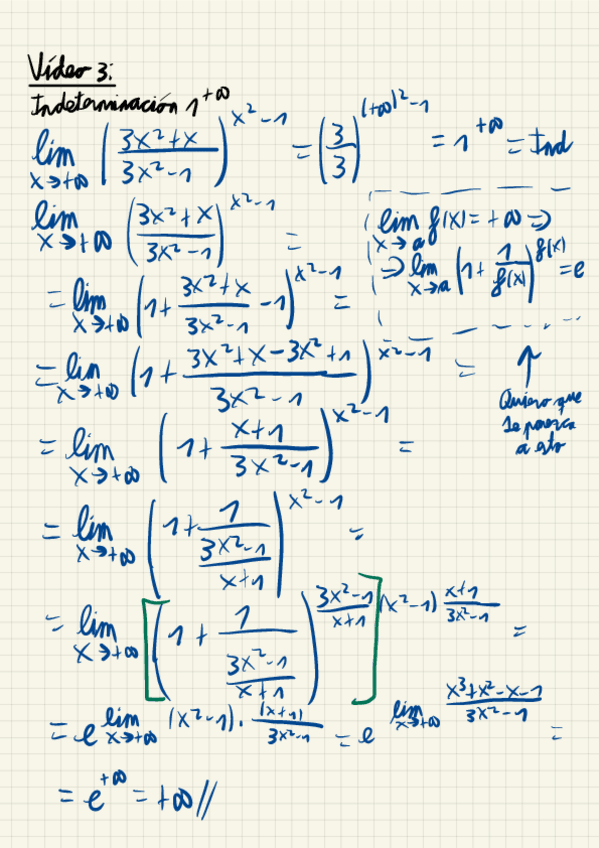 Vídeo 3:
Indeterminación 1^{+∞}
lim_{x→+∞} ((3x²+x)/(3x²-1))^{x²-1} = (3/3)^{(+∞)²-1} = 1^{+∞} = Ind
lim_{x→+∞} ((3x²+x)/(3x²-1))^{x²-1} =
lim_{x→a} f(x) = +∞ ⇒
⇒ lim_{x→a} (1 + 1/f(x))^{f(x)} = e
= lim_{x→+∞} (1 + (3x²+x)/(3x²-1) - 1)^{x²-1} =
= lim_{x→+∞} (1 + (3x²+x-3x²+1)/(3x²-1))^{x²-1} =
↑
Quiero que
se parezca
a esto
= lim_{x→+∞} (1 + (x+1)/(3x²-1))^{x²-1} =
= lim_{x→+∞} (1 + 1/((3x²-1)/(x+1)))^{x²-1} =
= lim_{x→+∞} [(1 + 1/((3x²-1)/(x+1)))^{(3x²-1)/(x+1)}]^{(x²-1) (x+1)/(3x²-1)} =
= e^{lim_{x→+∞} (x²-1)·(x+1)/(3x²-1)} = e^{lim_{x→+∞} (x³+x²-x-1)/(3x²-1)} =
= e^{+∞} = +∞//